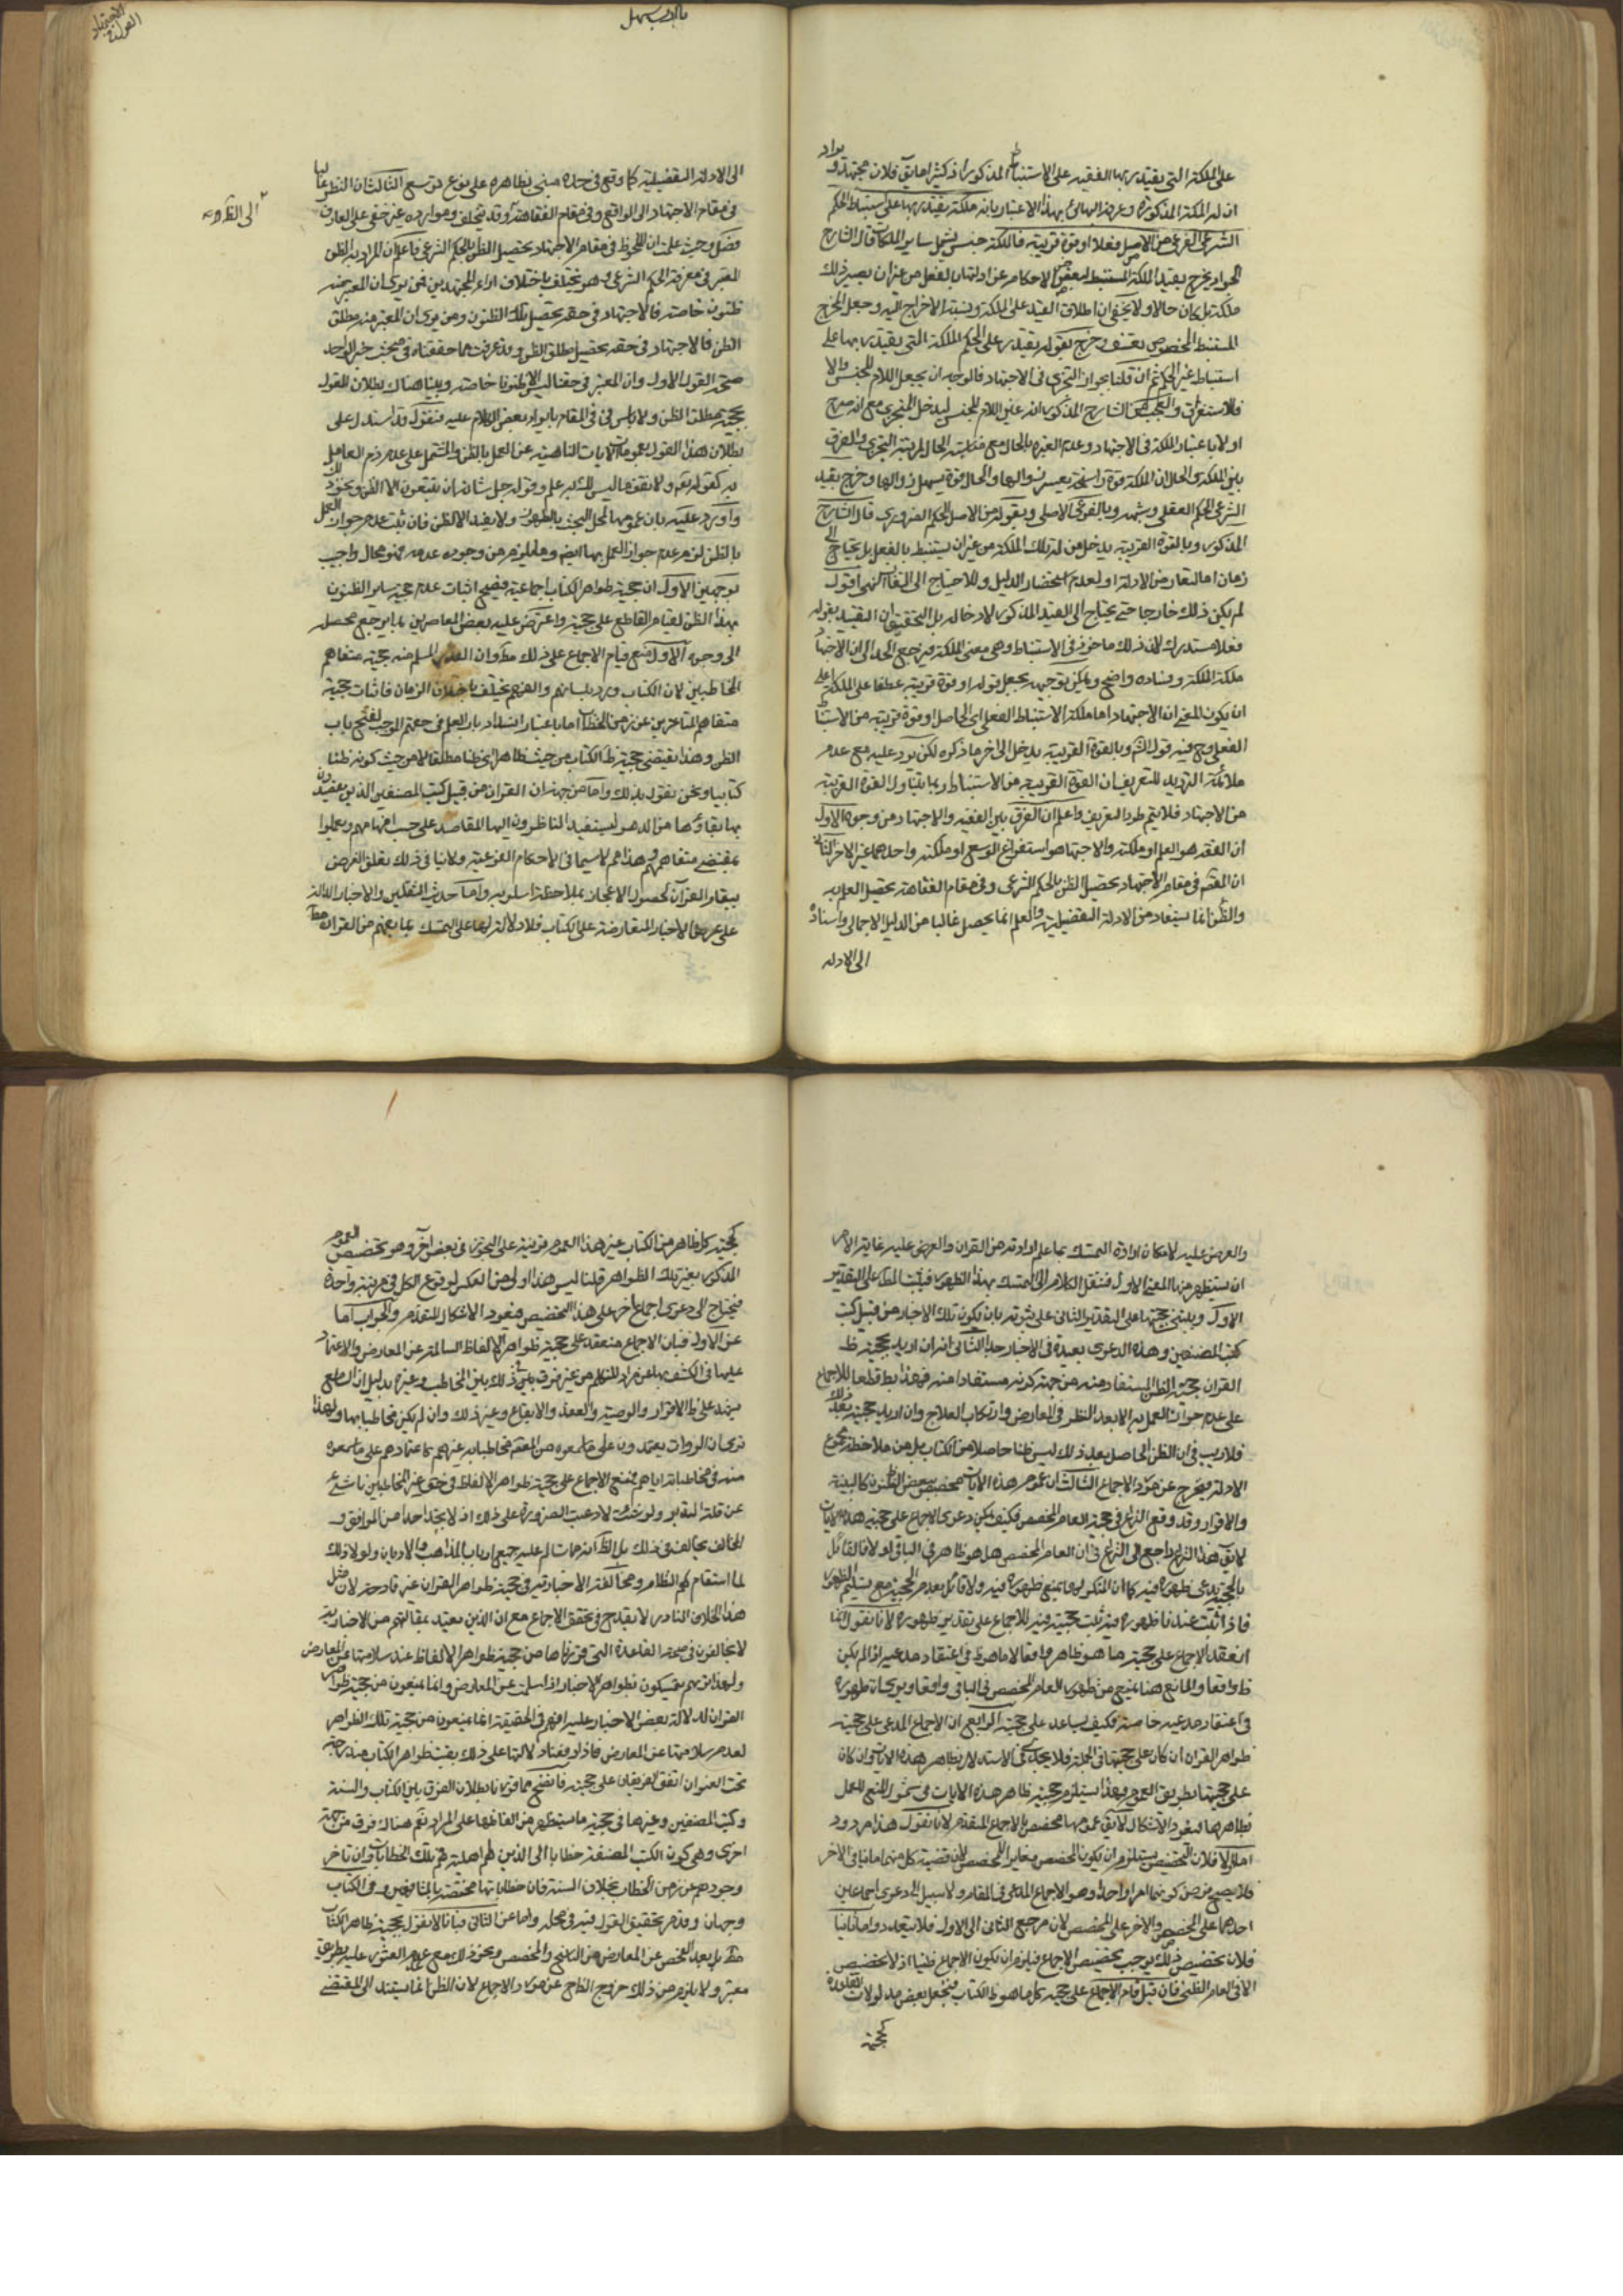 على الملكة التي يقتدر بها الفقيه على الاستنباط المذكور اذ كثيرا ما يق فلان مجتهد ويراد
ان له الملكة المذكورة وعرفه البهائي بهذا الاعتبار بانه ملكة يقتدر بها على استنباط الحكم
الشرعي الفرعي من الاصل فعلا او قوة قريبة فالملكة جنس يشمل ساير الملكات قال الشارح
الجواد يخرج بقيد الملكة المستنبط لبعض الاحكام عن ادلتها بالفعل من غير ان يصير ذلك
ملكة بل كان حالا ولا يخفى ان اطلاق القيد على الملكة ونسبة الاخراج اليه وجعل المخرج
المستنبط المخصوص تعسف وخرج بقوله يقتدر على الحكم الملكة التي يقتدر بها على
استنباط غير الحكم ثم ان قلنا بجواز التجزي في الاجتهاد فالوجه ان يجعل اللام للجنس والا
فللاستغراق والعجب من الشارح المذكور انه عين اللام للجنس ليدخل المتجزي مع انه صرح
اولا باعتبار الملكة في الاجتهاد وعدم العبرة بالحال مع مناسبة الحال لمرتبة التجزي والفرق
بين الملكة والحال ان الملكة قوة راسخة يعسر زوالها والحال قوة يسهل زوالها وخرج بقيد
الشرعي الحكم العقلي وشبهه وبالفرعي الاصلي وبقوله من الاصل الحكم الضروري قال الشارح
المذكور وبالقوة القريبة يدخل من له تلك الملكة من غير ان يستنبط بالفعل بل يحتاج الى
زمان اما لتعارض الادلة او لعدم استحضار الدليل وللاحتياج الى التفات انتهى اقول
لم يكن ذلك خارجا حتى يحتاج الى القيد المذكور لادخاله بل التحقيق ان التقييد بقوله
فعلا مستدرك لان ذلك ماخوذ في الاستنباط وهي معنى الملكة فيرجع الحد الى ان الاجتهاد
ملكة الملكة وفساده واضح ويمكن توجيهه بجعل قوله او قوة قريبة عطفا على الملكة على
ان يكون المعنى ان الاجتهاد اما ملكة الاستنباط الفعلي اي الحاصل او قوة قريبة من الاستنباط
الفعلي وح فيه قول الش وبالقوة القريبة يدخل الى اخر ما ذكره لكن يرد عليه مع عدم
ملائمة الترديد للتعريف ان القوة القريبة من الاستنباط ربما يتناول القوة القريبة
من الاجتهاد فلا يتم طرد التعريف واعلم ان الفرق بين الفقيه والاجتهاد من وجوه الاول
ان الفقه هو العلم او ملكته والاجتهاد هو استفراغ الوسع او ملكته واحدهما غير الاخر الثاني
ان المعتبر في مقام الاجتهاد تحصيل الظن بالحكم الشرعي وفي مقام الفقاهة تحصيل العلم به
والظن انما يستفاد من الادلة التفصيلية والعلم انما يحصل غالبا من الدليل الاجمالي واسناده
الى الادلة
الى الادلة التفصيلية كما وقع في حده مبني بظاهره على نوع توسع الثالث ان النظر غالبا
في مقام الاجتهاد الى الواقع وفي مقام الفقاهة وقد يتخلف وموارده غير خفي على العارف
الى الظ ومنه
فصل وحيث علمت ان الملحوظ في مقام الاجتهاد تحصيل الظن بالحكم الشرعي فاعلم ان المراد به الظن
المعتبر في معرفة الحكم الشرعي وهو يختلف باختلاف اراء المجتهدين فمن يرى ان المعتبر منه
ظنون خاصة فالاجتهاد في حقه تحصيل تلك الظنون ومن يرى ان المعتبر منه مطلق
الظن فالاجتهاد في حقه تحصيل مطلق الظن وقد عرفت مما حققناه في مبحث خبر الواحد
صحة القول الاول وان المعتبر في حقنا ليس الا ظنونا خاصة وبينا هناك بطلان القول
بحجية مطلق الظن ولا باس في المقام بايراد بعض الكلام عليه فنقول قد استدل على
بطلان هذا القول بعموم الايات الناهية عن العمل بالظن والمشتمل على عدم ذم العامل
به كقوله تعالى ولا تقف ما ليس لك به علم وقوله جل شانه ان يتبعون الا الظن ونحو ذلك
واورد عليه بان عمومها لمحل البحث بالظهور ولا يفيد الا الظن فان ثبت عدم جواز العمل
بالظن لزم عدم جواز العمل بها ايضا وما يلزم من وجوده عدمه فهو محال واجيب
بوجهين الاول ان حجية ظواهر الكتاب اجماعية فيصح اثبات عدم حجية ساير الظنون
بهذا الظن لقيام القاطع على حجيته واعترض عليه بعض المعاصرين بما يرجع محصله
الى وجوه الاول منع قيام الاجماع على ذلك مط وان القدر المسلم منه حجية متفاهم
المخاطبين لان الكتاب ورد بلسانهم والفهم يختلف باختلاف الزمان فاثبات حجية
متفاهم المتاخرين عن زمن الخطاب اما باعتبار انسداد باب العلم في حقهم الموجب لفتح باب
الظن وهذا يقتضي حجية ظ الكتاب من حيث ظاهرا اي ظنا مطلقا لا من حيث كونه ظنا
كتابيا ونحن نقول بذلك واما من جهة ان القران من قبيل كتب المصنفين الذين يقصدون
بها بقاءها من الدهر ليستفيد الناظرون اليها المقاصد على حسب افهامهم ويعملوا
بمقتضى متفاهمهم وهذا مم لا سيما في الاحكام الفرعية ولا ينافي ذلك تعلق الغرض
ببقاء القران لحصول الاعجاز بملاحظة اسلوبه واما حديث الثقلين والاخبار الدالة
على عرض الاخبار المتعارضة على الكتاب فلا دلالة لها على التمسك بما يفهم من القران مط
والعرض عليه لامكان ارادة التمسك بما علم ارادته من القران والعرض عليه غاية الامر
ان يستظهر منها المعنى الاول فننقل الكلام الى التمسك بهذا الظهور فيثبت المط على التقدير
الاول ويبتني حجيتها على التقدير الثاني على ثبوته بان يكون تلك الاخبار من قبيل كتب
كتب المصنفين وهذه الدعوى بعيدة في الاخبار جدا الثاني انه ان اريد بحجية ظ
القران حجية الظن المستفاد منه من جهة كونه مستفادا منه فهذا بط قطعا للاجماع
على عدم جواز العمل به الا بعد النظر في المعارض وارتكاب العلاج وان اريد حجيته بعد ذلك
فلا ريب في ان الظن الحاصل بعد ذلك ليس ظنا حاصلا من الكتاب بل من ملاحظة مجموع
الادلة فيخرج عن مورد الاجماع الثالث ان عموم هذه الايات مخصص ببعض الظنون كالبينة
والاقرار وقد وقع النزاع في حجية العام المخصص فكيف يمكن دعوى الاجماع على حجية هذه الايات
لا يق هذا النزاع راجع الى النزاع في ان العام المخصص هل هو ظاهر في الباقي او لا فالقائل
بالحجية يدعي ظهوره فيه كما ان المنكر لها يمنع ظهوره فيه ولا قائل بعدم الحجية مع تسليم الظهور
فاذا ثبت عندنا ظهوره فيه ثبت حجيته فيه للاجماع على تقدير ظهوره لانا نقول انما
انعقد الاجماع على حجية ما هو ظاهر واقعا لا ما هو ظ في اعتقاد مدعيه اذا لم يكن
ظ واقعا والمانع هنا يمنع من ظهور العام المخصص في الباقي واقعا ويرى بان ظهوره
في اعتقاد مدعيه خاصة فكيف يساعد على حجيته الرابع ان الاجماع المدعى على حجية
ظواهر القران ان كان على حجيتها في الجملة فلا يجدي في الاستدلال بظاهر هذه الايات وان كان
على حجيتها بطريق العموم فهذا يستلزم حجية ظاهر هذه الايات في شمول المنع للعمل
بظاهرها فيعود الاشكال لا يق عمومها مخصص بالاجماع المتقدم لانا نقول هذا مردود
اما اولا فلان التخصيص يستلزم ان يكون المخصص مغايرا للمخصص لان قضية كل منهما منافي الاخر
فلا يصح فرض كونهما امرا واحدا وهو الاجماع المدعى في المقام ولا سبيل الى دعوى اجماعين
احدهما على المخصص والاخر على المخصص لان مرجع الثاني الى الاول فلا يتعدد واما ثانيا
فلان تخصيص ذلك يوجب تخصيص الاجماع فيلزم ان يكون الاجماع ظنيا اذ لا تخصيص
الا في العام الظني فان قيل قام الاجماع على حجية كل ما هو ظ الكتاب فنجعل بعض مدلولات
كحجية
كحجية كل ظاهر من الكتاب غير هذا العموم قرينة على التجوز في بعض اخر وهو تخصيص العموم
المذكور بغير تلك الظواهر قلنا ليس هذا اولى من العكس لوقوع الكل في مرتبة واحدة
فيحتاج الى دعوى اجماع اخر على هذا التخصيص فيعود الاشكال المتقدم والجواب اما
عن الاول فبان الاجماع منعقد على حجية ظواهر الالفاظ السالمة عن المعارض والاعتماد
عليها في الكشف بها عن مراد المتكلم من غير فرق في ذلك بين المخاطب وغيره بدليل ان السامع
يشهد على ظ الاقرار والوصية والعقد والايقاع وغير ذلك وان لم يكن مخاطبا بها ولهذا
نرى ان الروات يعتمدون على ما سمعوه من المعصوم مخاطبا به غيرهم كاعتمادهم على ما سمعوه
منه في مخاطباته اياهم فمنع الاجماع على حجية ظواهر الالفاظ في حق غير المخاطبين ناشئ
عن قلة التدبر ولو شئت لادعيت الضرورة على ذلك اذ لا نجد احدا من الموافق و
المخالف يخالف في ذلك بل الظ انه مما تسالم عليه جميع ارباب المذاهب والاديان ولولا ذلك
لما استقام لهم النظام ومخالفة الاخبارية في حجية ظواهر القران غير قادحة لان مثل
هذا الخلاف النادر لا يقدح في تحقق الاجماع مع ان الذين يعتد بمقالتهم من الاخبارية
لا يخالفون في صحة القاعدة التي قررناها من حجية ظواهر الالفاظ عند سلامتها عن المعارض
ولهذا تريهم يتمسكون بظواهر الاخبار اذا سلمت عن المعارض وانما يمنعون من حجية ظواهر
القران لدلالة بعض الاخبار عليه فهم في الحقيقة انما يمنعون من حجية تلك الظواهر
لعدم سلامتها عن المعارض فاذا افسدنا دلالتها على ذلك بقيت ظواهر الكتاب مندرجة
تحت العنوان اتفق الفريقان على حجيته فاتضح مما قررنا بطلان الفرق بين الكتاب والسنة
وكتب المصنفين وغيرها في حجية ما يستظهر من الفاظها على المراد نعم هناك فرق من جهة
اخرى وهي كون الكتب المصنفة خطابا الى الذين لهم اهلية فهم تلك الخطابات وان تاخر
وجودهم عن زمن الخطاب بخلاف السنة فان خطاباتها مختصة بالمشافهين وفي الكتاب
وجهان وقد مر تحقيق القول فيه في محله واما عن الثاني فبانا لا نقول بحجية ظاهر الكتاب
مط بل بعد الفحص عن المعارض من الناسخ والمخصص ونحو ذلك مع عدم العثور عليه بطريق
معتبر ولا يلزم من ذلك خروج الظاهر عن مورد الاجماع لان الظن انما يستند الى المقتضي